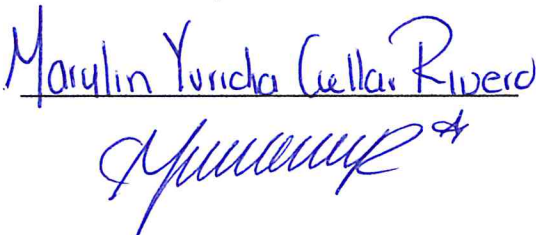 Marylin Yuricha Cuellar Rivero